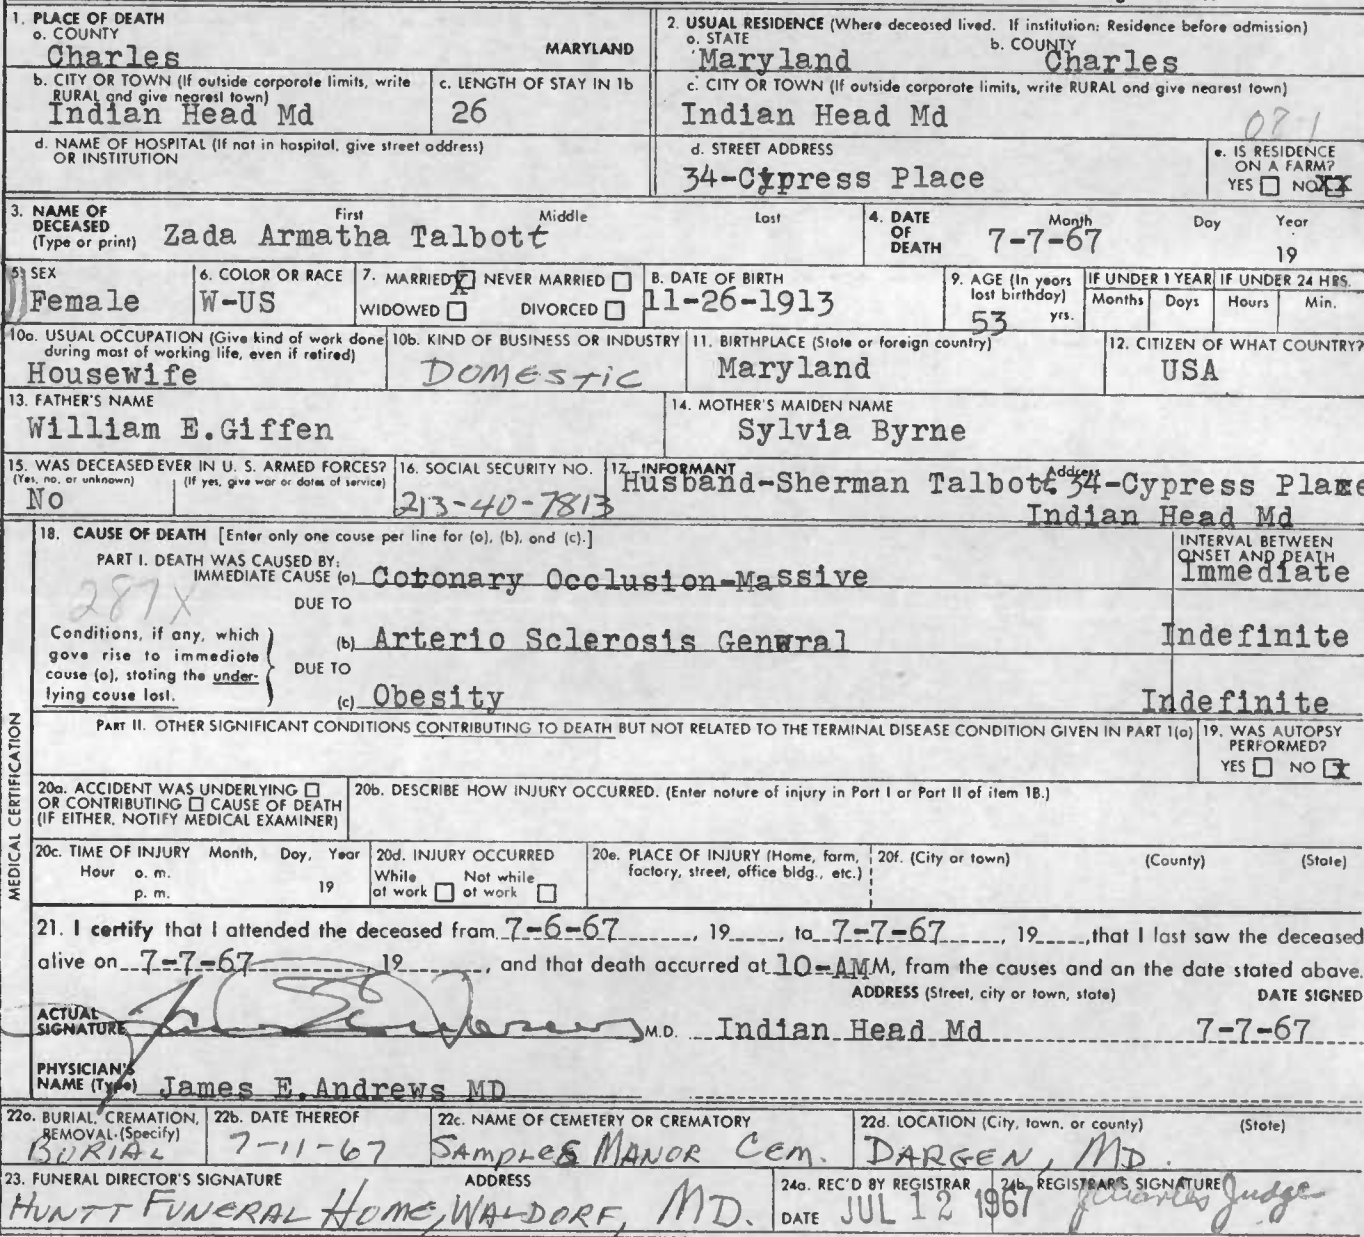 1. PLACE OF DEATH
a. COUNTY
Charles MARYLAND
2. USUAL RESIDENCE (Where deceased lived. If institution: Residence before admission)
a. STATE b. COUNTY
Maryland Charles
b. CITY OR TOWN (If outside corporate limits, write RURAL and give nearest town)
Indian Head Md
c. LENGTH OF STAY IN 1b
26
c. CITY OR TOWN (If outside corporate limits, write RURAL and give nearest town)
Indian Head Md
081
d. NAME OF HOSPITAL (If not in hospital, give street address)
OR INSTITUTION
d. STREET ADDRESS
34-Cypress Place
e. IS RESIDENCE
ON A FARM?
YES NO XX
3. NAME OF
DECEASED
(Type or print)
First Middle Last
Zada Armatha Talbott
4. DATE
OF
DEATH
Month Day Year
7-7-67 19
5. SEX
Female
6. COLOR OR RACE
W-US
7. MARRIED X NEVER MARRIED
WIDOWED DIVORCED
8. DATE OF BIRTH
11-26-1913
9. AGE (In years
last birthday)
53 yrs.
IF UNDER 1 YEAR IF UNDER 24 HRS.
Months Days Hours Min.
10a. USUAL OCCUPATION (Give kind of work done
during most of working life, even if retired)
Housewife
10b. KIND OF BUSINESS OR INDUSTRY
DOMESTIC
11. BIRTHPLACE (State or foreign country)
Maryland
12. CITIZEN OF WHAT COUNTRY?
USA
13. FATHER'S NAME
William E.Giffen
14. MOTHER'S MAIDEN NAME
Sylvia Byrne
15. WAS DECEASED EVER IN U. S. ARMED FORCES?
(Yes, no, or unknown) (If yes, give war or dates of service)
No
16. SOCIAL SECURITY NO.
213-40-7813
17. INFORMANT Address
Husband-Sherman Talbott 34-Cypress Place
Indian Head Md
18. CAUSE OF DEATH [Enter only one cause per line for (a), (b), and (c).]
INTERVAL BETWEEN
ONSET AND DEATH
PART I. DEATH WAS CAUSED BY:
IMMEDIATE CAUSE (a) Coronary Occlusion-Massive Immediate
287X
DUE TO
Conditions, if any, which
gave rise to immediate
cause (a), stating the under-
lying cause last.
(b) Arterio Sclerosis General Indefinite
DUE TO
(c) Obesity Indefinite
PART II. OTHER SIGNIFICANT CONDITIONS CONTRIBUTING TO DEATH BUT NOT RELATED TO THE TERMINAL DISEASE CONDITION GIVEN IN PART 1(a)
19. WAS AUTOPSY
PERFORMED?
YES NO X
MEDICAL CERTIFICATION
20a. ACCIDENT WAS UNDERLYING
OR CONTRIBUTING CAUSE OF DEATH
(IF EITHER, NOTIFY MEDICAL EXAMINER)
20b. DESCRIBE HOW INJURY OCCURRED. (Enter nature of injury in Part I or Part II of item 18.)
20c. TIME OF INJURY Month, Day, Year
Hour a. m.
p. m. 19
20d. INJURY OCCURRED
While Not while
at work at work
20e. PLACE OF INJURY (Home, farm,
factory, street, office bldg., etc.)
20f. (City or town) (County) (State)
21. I certify that I attended the deceased from 7-6-67, 19, to 7-7-67, 19, that I last saw the deceased
alive on 7-7-67, 19, and that death occurred at 10-AMM, from the causes and on the date stated above.
ADDRESS (Street, city or town, state) DATE SIGNED
ACTUAL
SIGNATURE M.D. Indian Head Md 7-7-67
PHYSICIAN'S
NAME (Type) James E.Andrews MD
22a. BURIAL, CREMATION,
REMOVAL (Specify)
BURIAL
22b. DATE THEREOF
7-11-67
22c. NAME OF CEMETERY OR CREMATORY
SAMPLES MANOR CEM.
22d. LOCATION (City, town, or county) (State)
DARGEN, MD.
23. FUNERAL DIRECTOR'S SIGNATURE ADDRESS
HUNTT FUNERAL HOME, WALDORF, MD.
24a. REC'D BY REGISTRAR
DATE JUL 12 1967
24b. REGISTRAR'S SIGNATURE
J Charles Judge